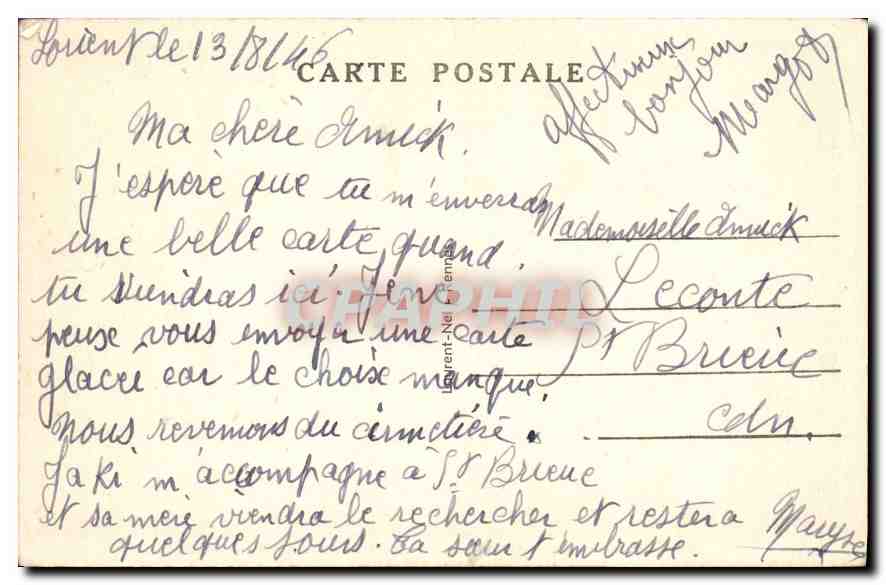 Lorient le 13/8/46
CARTE POSTALE
affectueux
bonjour
Margot
Ma chère Annick.
J'espère que tu m'enverras
une belle carte quand
tu viendras ici. Je ne
peux vous envoyer une carte
glacée car le choix manque.
Nous revenons du cimetière.
Jaki m'accompagne à St Brieuc
et sa mère viendra le rechercher et restera
quelques jours. Ta sœur t'embrasse.
Maryse
Mademoiselle Annick
Leconte
St Brieuc
cdn.
Laurent-Nel Rennes
CPAPHIL